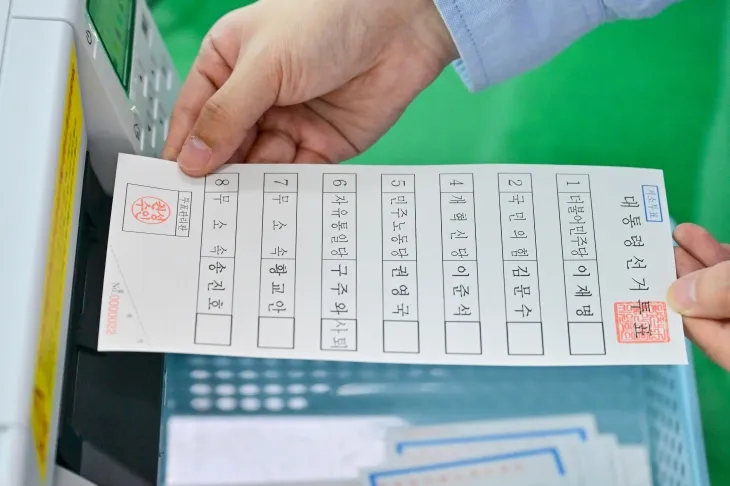 대통령선거투표
거소투표
1 더불어민주당 이재명
2 국민의힘 김문수
4 개혁신당 이준석
5 민주노동당 권영국
6 자유통일당 구주와 사퇴
7 무소속 황교안
8 무소속 송진호
투표관리관
No 0000022